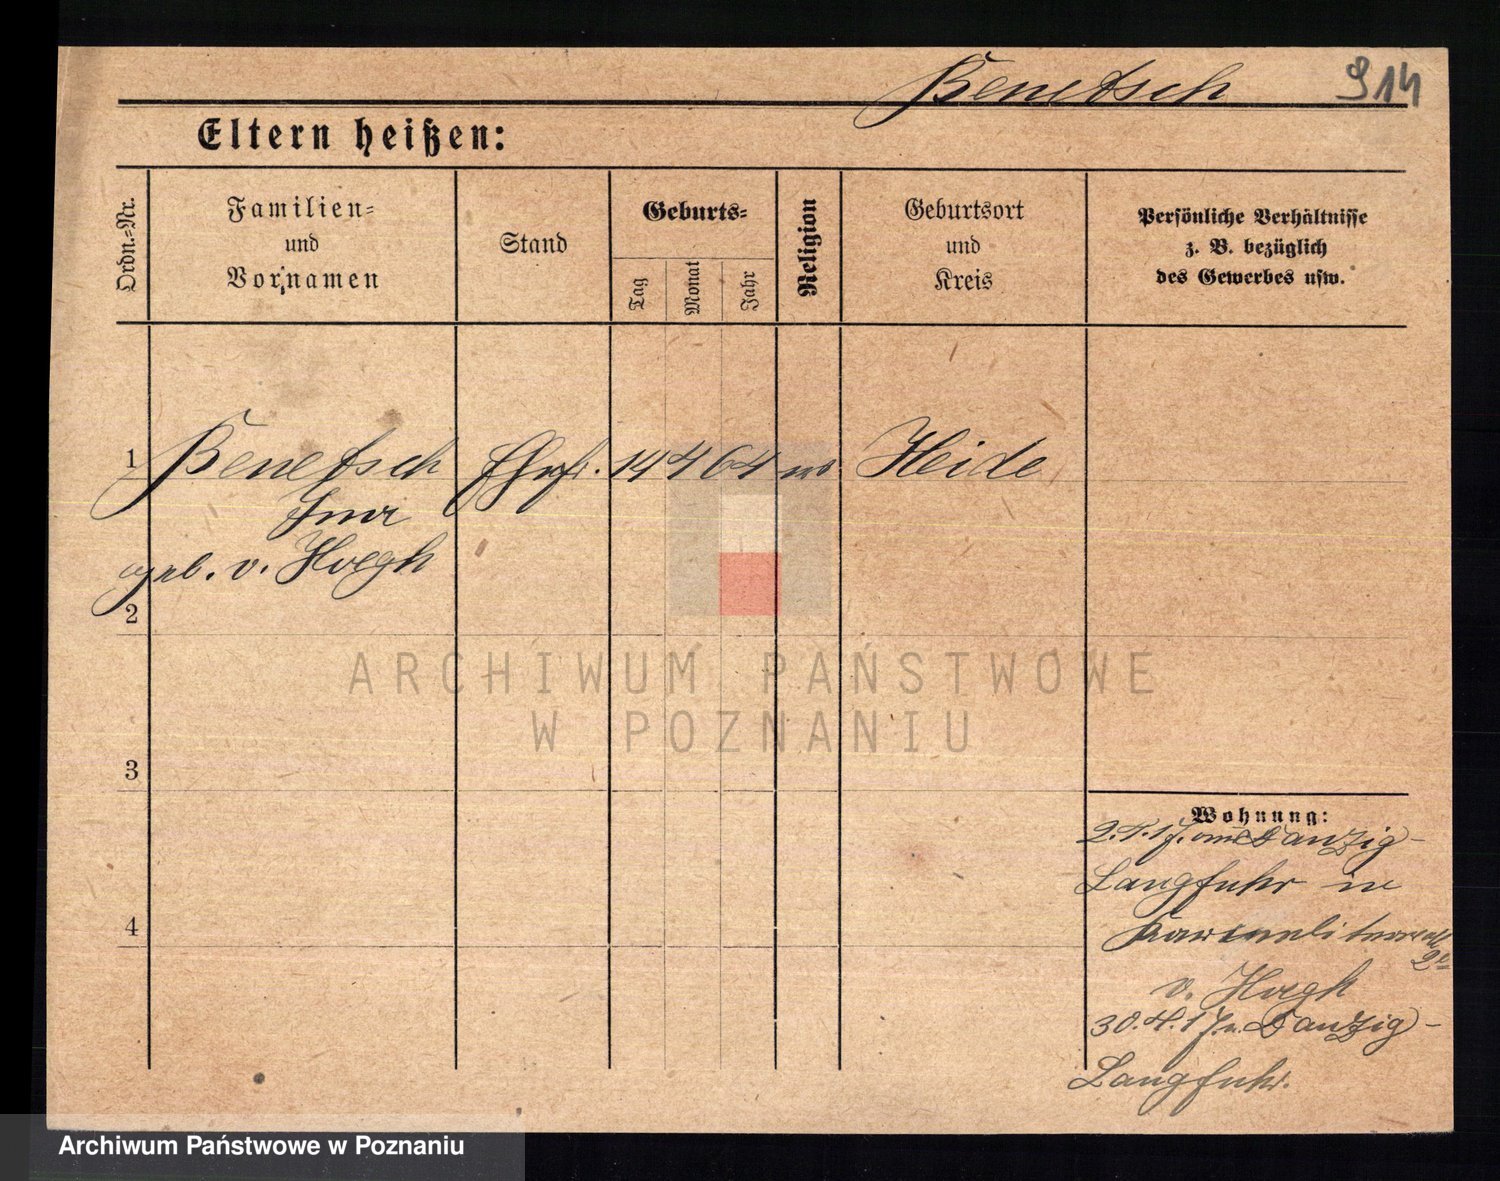 Benetsch 914
Eltern heißen:
Ordn.-Nr.
Familien-
und
Vornamen
Stand
Geburts-
Tag
Monat
Jahr
Religion
Geburtsort
und
Kreis
Persönliche Verhältnisse
z. B. bezüglich
des Gewerbes usw.
1 Benetsch Ehefr. 14 4 64 Heide
geb. v. Hoegh
2
ARCHIWUM PAŃSTWOWE
W POZNANIU
3
Wohnung:
2.4.17. aus Danzig-
Langfuhr in
4
v. Hoegh
30.4.17. n. Danzig-
Langfuhr.
Archiwum Państwowe w Poznaniu